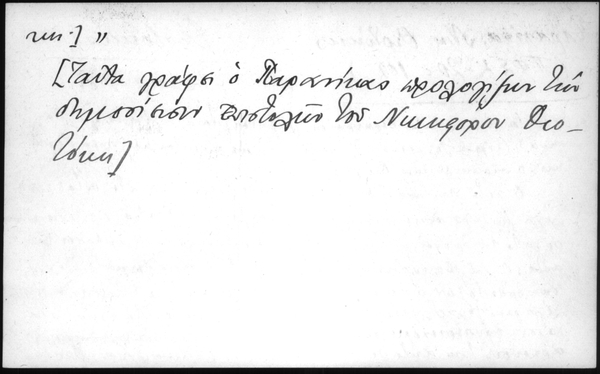 τικῆ.] "
[Ταῦτα γράφει ὁ Παρανίκας προλογίζων τὴν
δημοσίευσιν ἐπιστολῶν τοῦ Νικηφόρου Θεο-
τόκη]